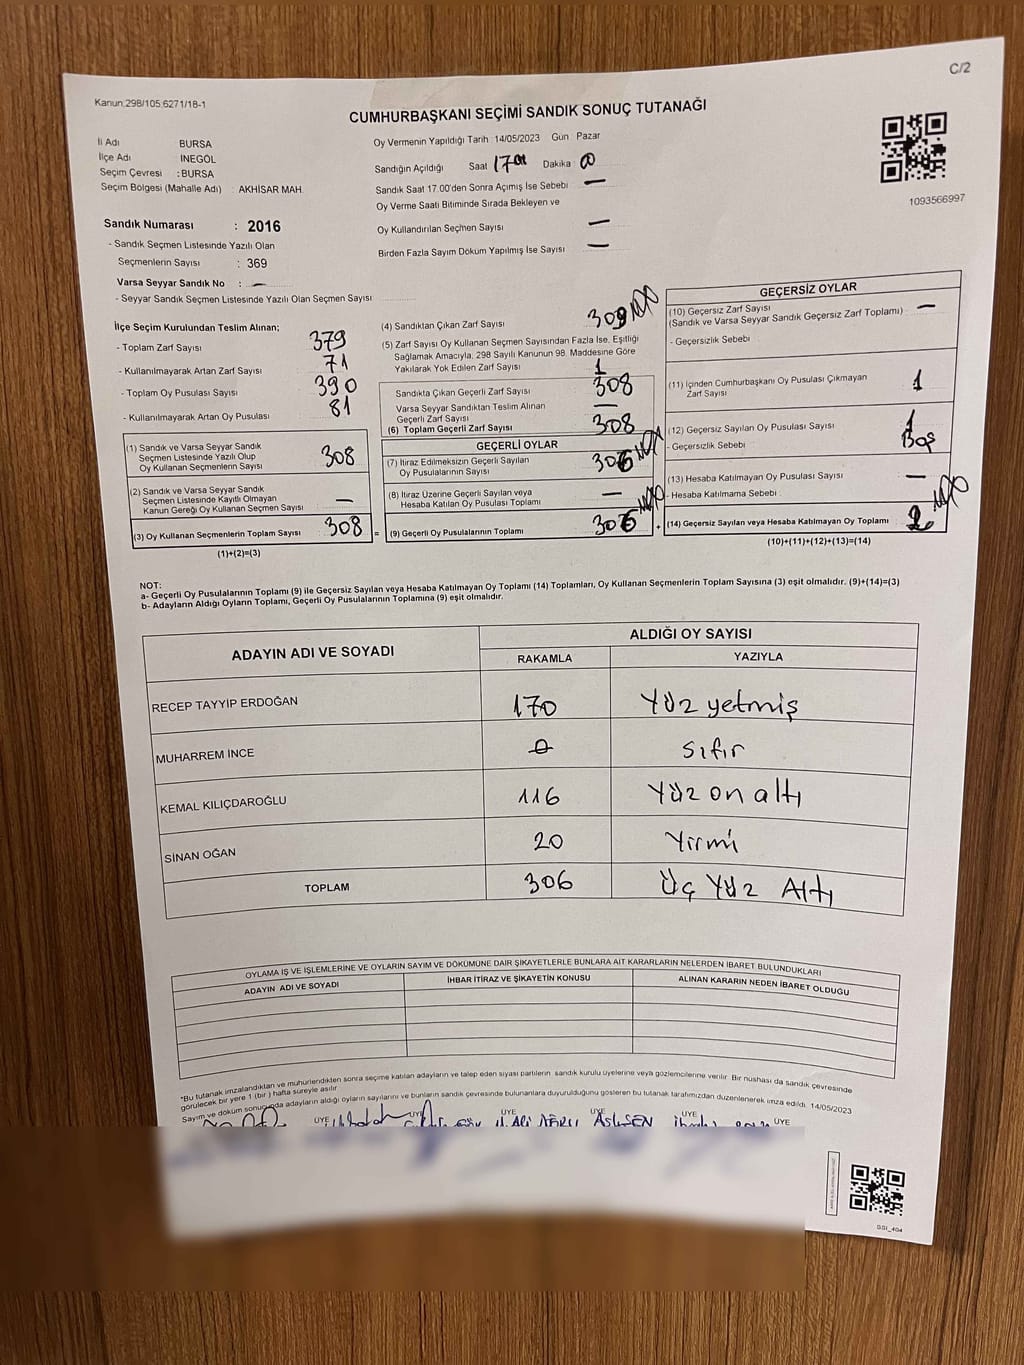 C/2
Kanun:298/105,6271/18-1
CUMHURBAŞKANI SEÇİMİ SANDIK SONUÇ TUTANAĞI
İl Adı BURSA
İlçe Adı İNEGÖL
Seçim Çevresi : BURSA
Seçim Bölgesi (Mahalle Adı) : AKHİSAR MAH.
Oy Vermenin Yapıldığı Tarih : 14/05/2023 Gün Pazar
Sandığın Açıldığı Saat 17 Dakika
Sandık Saat 17.00'den Sonra Açımış İse Sebebi —
Oy Verme Saati Bitiminde Sırada Bekleyen ve
Oy Kullandırılan Seçmen Sayısı —
Birden Fazla Sayım Döküm Yapılmış İse Sayısı —
1093566997
Sandık Numarası : 2016
- Sandık Seçmen Listesinde Yazılı Olan
Seçmenlerin Sayısı : 369
Varsa Seyyar Sandık No : —
- Seyyar Sandık Seçmen Listesinde Yazılı Olan Seçmen Sayısı
İlçe Seçim Kurulundan Teslim Alınan;
- Toplam Zarf Sayısı 379
- Kullanılmayarak Artan Zarf Sayısı 71
- Toplam Oy Pusulası Sayısı 390
- Kullanılmayarak Artan Oy Pusulası 81
(1) Sandık ve Varsa Seyyar Sandık
Seçmen Listesinde Yazılı Olup
Oy Kullanan Seçmenlerin Sayısı 308
(2) Sandık ve Varsa Seyyar Sandık
Seçmen Listesinde Kayıtlı Olmayan
Kanun Gereği Oy Kullanan Seçmen Sayısı —
(3) Oy Kullanan Seçmenlerin Toplam Sayısı 308
(1)+(2)=(3)
(4) Sandıktan Çıkan Zarf Sayısı 309
(5) Zarf Sayısı Oy Kullanan Seçmen Sayısından Fazla İse, Eşitliği
Sağlamak Amacıyla, 298 Sayılı Kanunun 98. Maddesine Göre
Yakılarak Yok Edilen Zarf Sayısı 1
Sandıkta Çıkan Geçerli Zarf Sayısı 308
Varsa Seyyar Sandıktan Teslim Alınan
Geçerli Zarf Sayısı —
(6) Toplam Geçerli Zarf Sayısı 308
GEÇERLİ OYLAR
(7) İtiraz Edilmeksizin Geçerli Sayılan
Oy Pusulalarının Sayısı 306
(8) İtiraz Üzerine Geçerli Sayılan veya
Hesaba Katılan Oy Pusulası Toplamı —
= (9) Geçerli Oy Pusulalarının Toplamı 306 +
GEÇERSİZ OYLAR
(10) Geçersiz Zarf Sayısı
(Sandık ve Varsa Seyyar Sandık Geçersiz Zarf Toplamı) —
- Geçersizlik Sebebi
(11) İçinden Cumhurbaşkanı Oy Pusulası Çıkmayan
Zarf Sayısı 1
(12) Geçersiz Sayılan Oy Pusulası Sayısı 1
- Geçersizlik Sebebi Boş
(13) Hesaba Katılmayan Oy Pusulası Sayısı —
- Hesaba Katılmama Sebebi
(14) Geçersiz Sayılan veya Hesaba Katılmayan Oy Toplamı 2
(10)+(11)+(12)+(13)=(14)
NOT:
a- Geçerli Oy Pusulalarının Toplamı (9) ile Geçersiz Sayılan veya Hesaba Katılmayan Oy Toplamı (14) Toplamları, Oy Kullanan Seçmenlerin Toplam Sayısına (3) eşit olmalıdır. (9)+(14)=(3)
b- Adayların Aldığı Oyların Toplamı, Geçerli Oy Pusulalarının Toplamına (9) eşit olmalıdır.
ADAYIN ADI VE SOYADI
ALDIĞI OY SAYISI
RAKAMLA YAZIYLA
RECEP TAYYİP ERDOĞAN 170 Yüz yetmiş
MUHARREM İNCE 0 sıfır
KEMAL KILIÇDAROĞLU 116 Yüz on altı
SİNAN OĞAN 20 Yirmi
TOPLAM 306 Üç Yüz Altı
OYLAMA İŞ VE İŞLEMLERİNE VE OYLARIN SAYIM VE DÖKÜMÜNE DAİR ŞİKAYETLERLE BUNLARA AİT KARARLARIN NELERDEN İBARET BULUNDUKLARI
ADAYIN ADI VE SOYADI İHBAR İTİRAZ VE ŞİKAYETİN KONUSU ALINAN KARARIN NEDEN İBARET OLDUĞU
*Bu tutanak imzalandıktan ve mühürlendikten sonra seçime katılan adayların ve talep eden siyasi partilerin sandık kurulu üyelerine veya gözlemcilerine verilir. Bir nüshası da sandık çevresinde
görülecek bir yere 1 (bir) hafta süreyle asılır.
Sayım ve döküm sonucunda adayların aldığı oyların sayılarını ve bunların sandık çevresinde bulunanlara duyurulduğunu gösteren bu tutanak tarafımızdan düzenlenerek imza edildi. 14/05/2023
ÜYE ÜYE ÜYE ÜYE ÜYE ÜYE